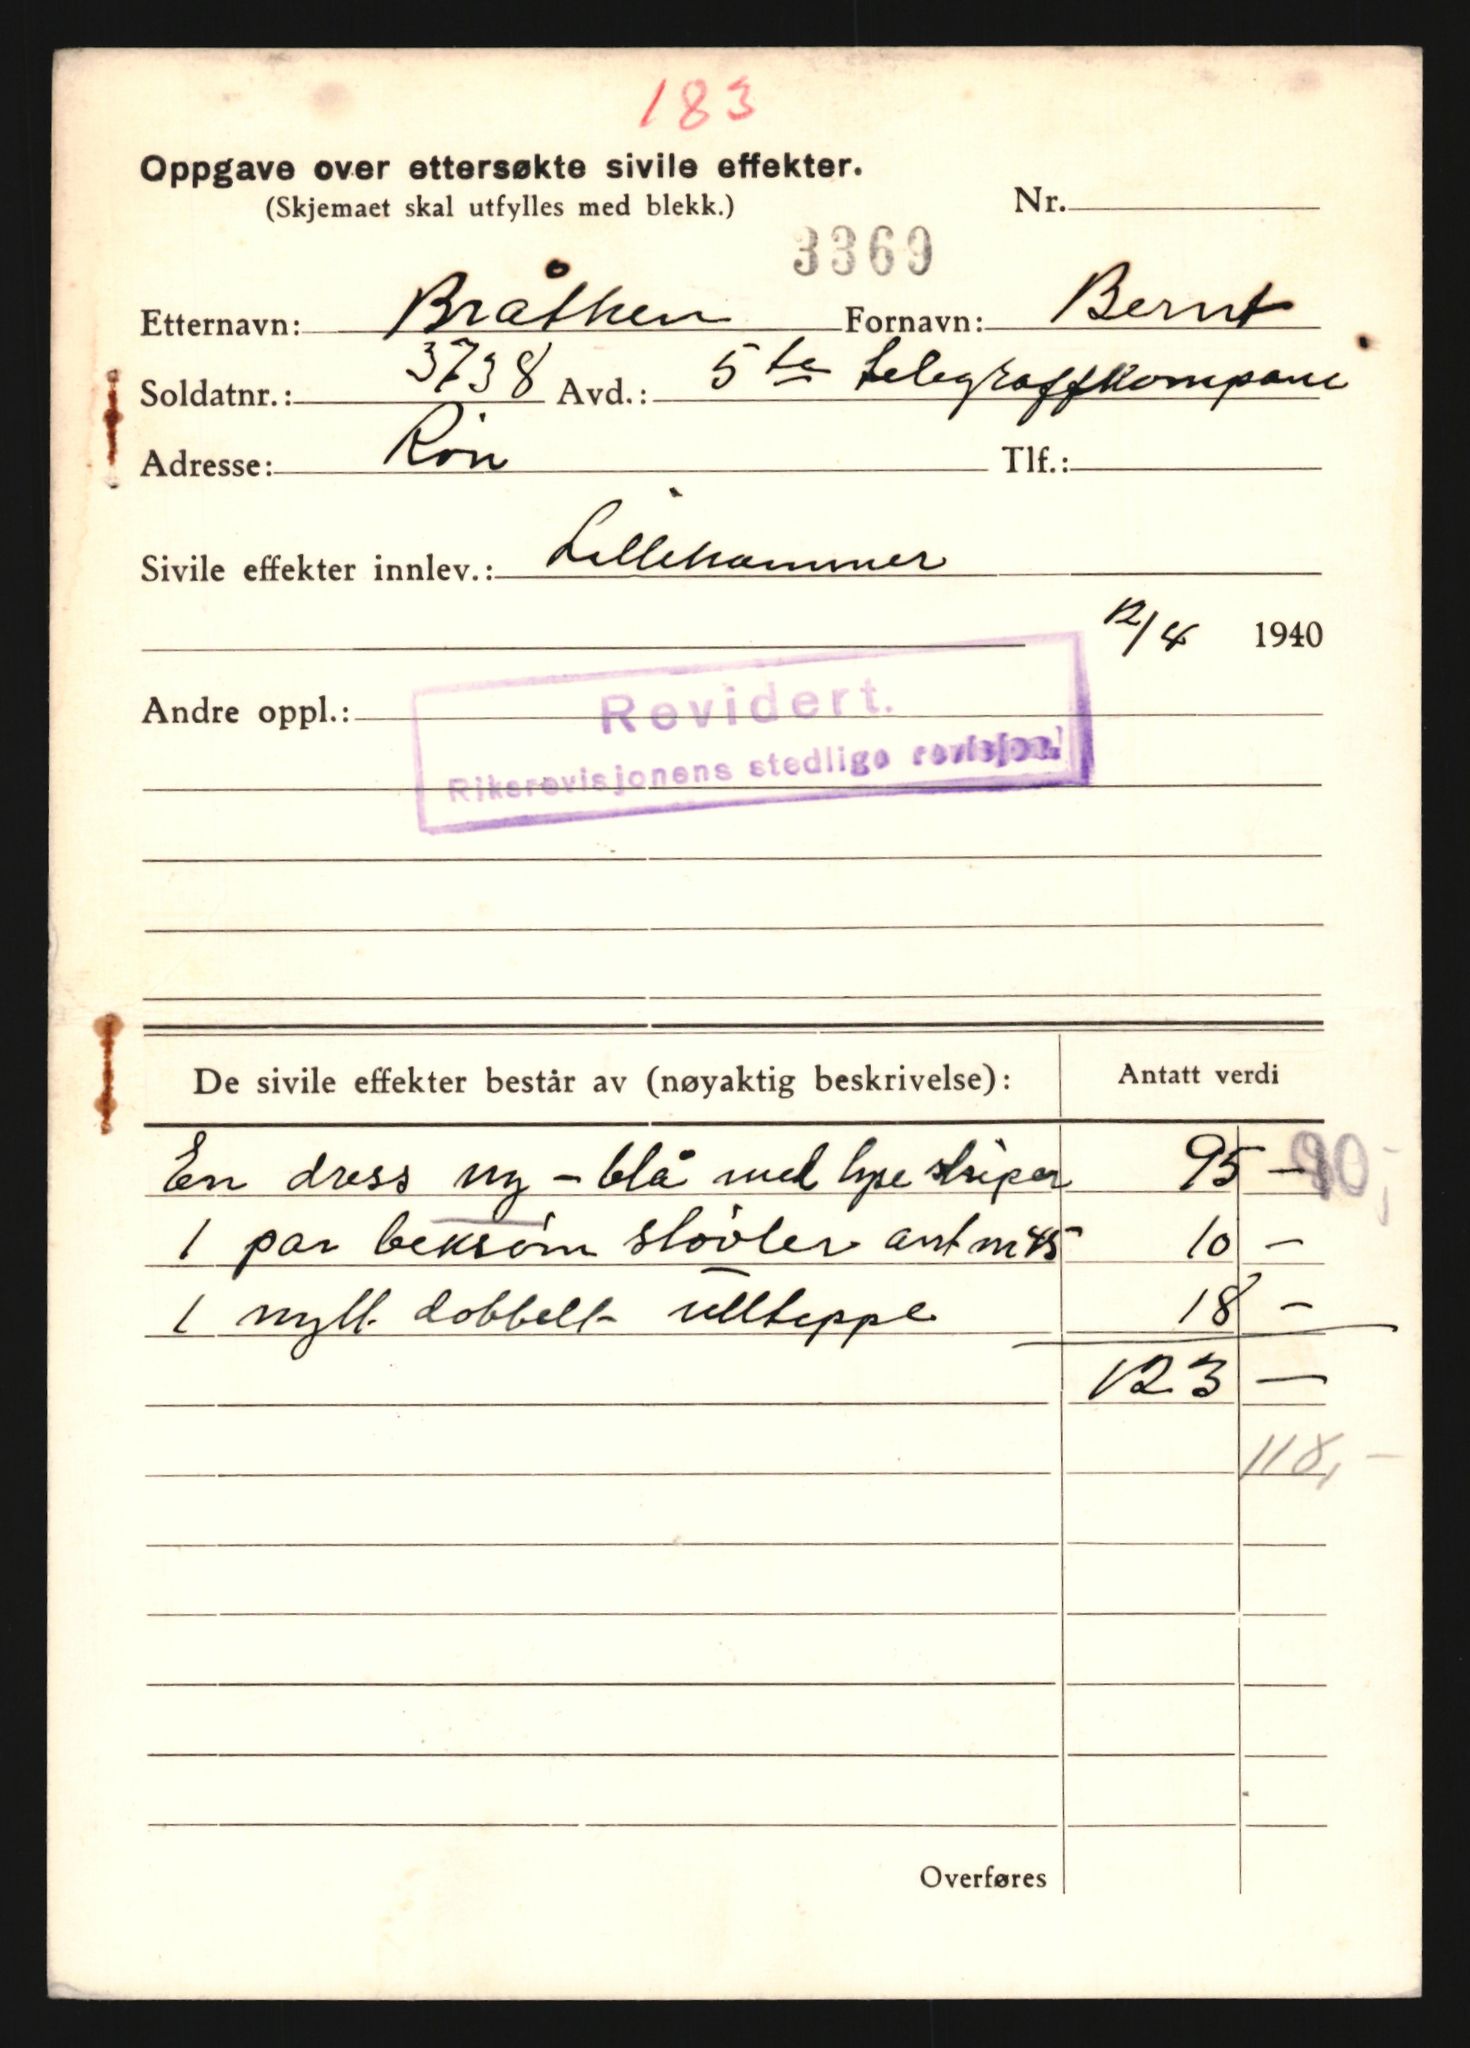 183
Oppgave over ettersøkte sivile effekter.
(Skjemaet skal utfylles med blekk.)
Nr.
3369
Etternavn: Bråthen Fornavn: Bernt
Soldatnr.: 3738 Avd.: 5te telegraffkompani
Adresse: Røn Tlf.:
Sivile effekter innlev.: Lillehammer
12/4 1940
Andre oppl.:
Revidert.
Riksrevisjonens stedlige revisjon.
De sivile effekter består av (nøyaktig beskrivelse): Antatt verdi
En dress ny - blå med lyse striper 95 - 90,-
1 par beksøm støvler ant m 45 10 -
1 nytt dobbelt ullteppe 18 -
123 -
118,-
Overføres